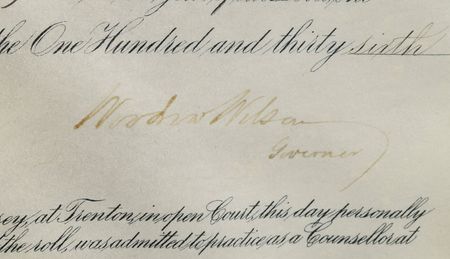 the One Hundred and thirty sixth
Woodrow Wilson
Governor
sey, at Trenton, in open Court, this day personally
the roll, was admitted to practice, as a Counsellor at